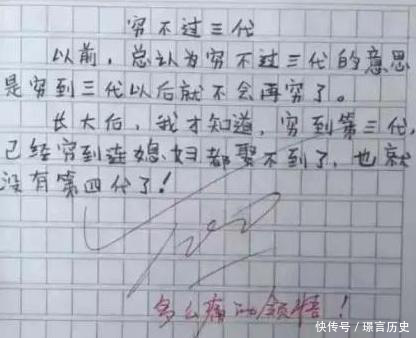 穷不过三代
以前，总认为穷不过三代的意思
是穷到三代以后就不会再穷了。
长大后，我才知道，穷到第三代，
已经穷到连媳妇都娶不到了，也就
没有第四代了！
100
多么痛的领悟！
快传号／璟言历史